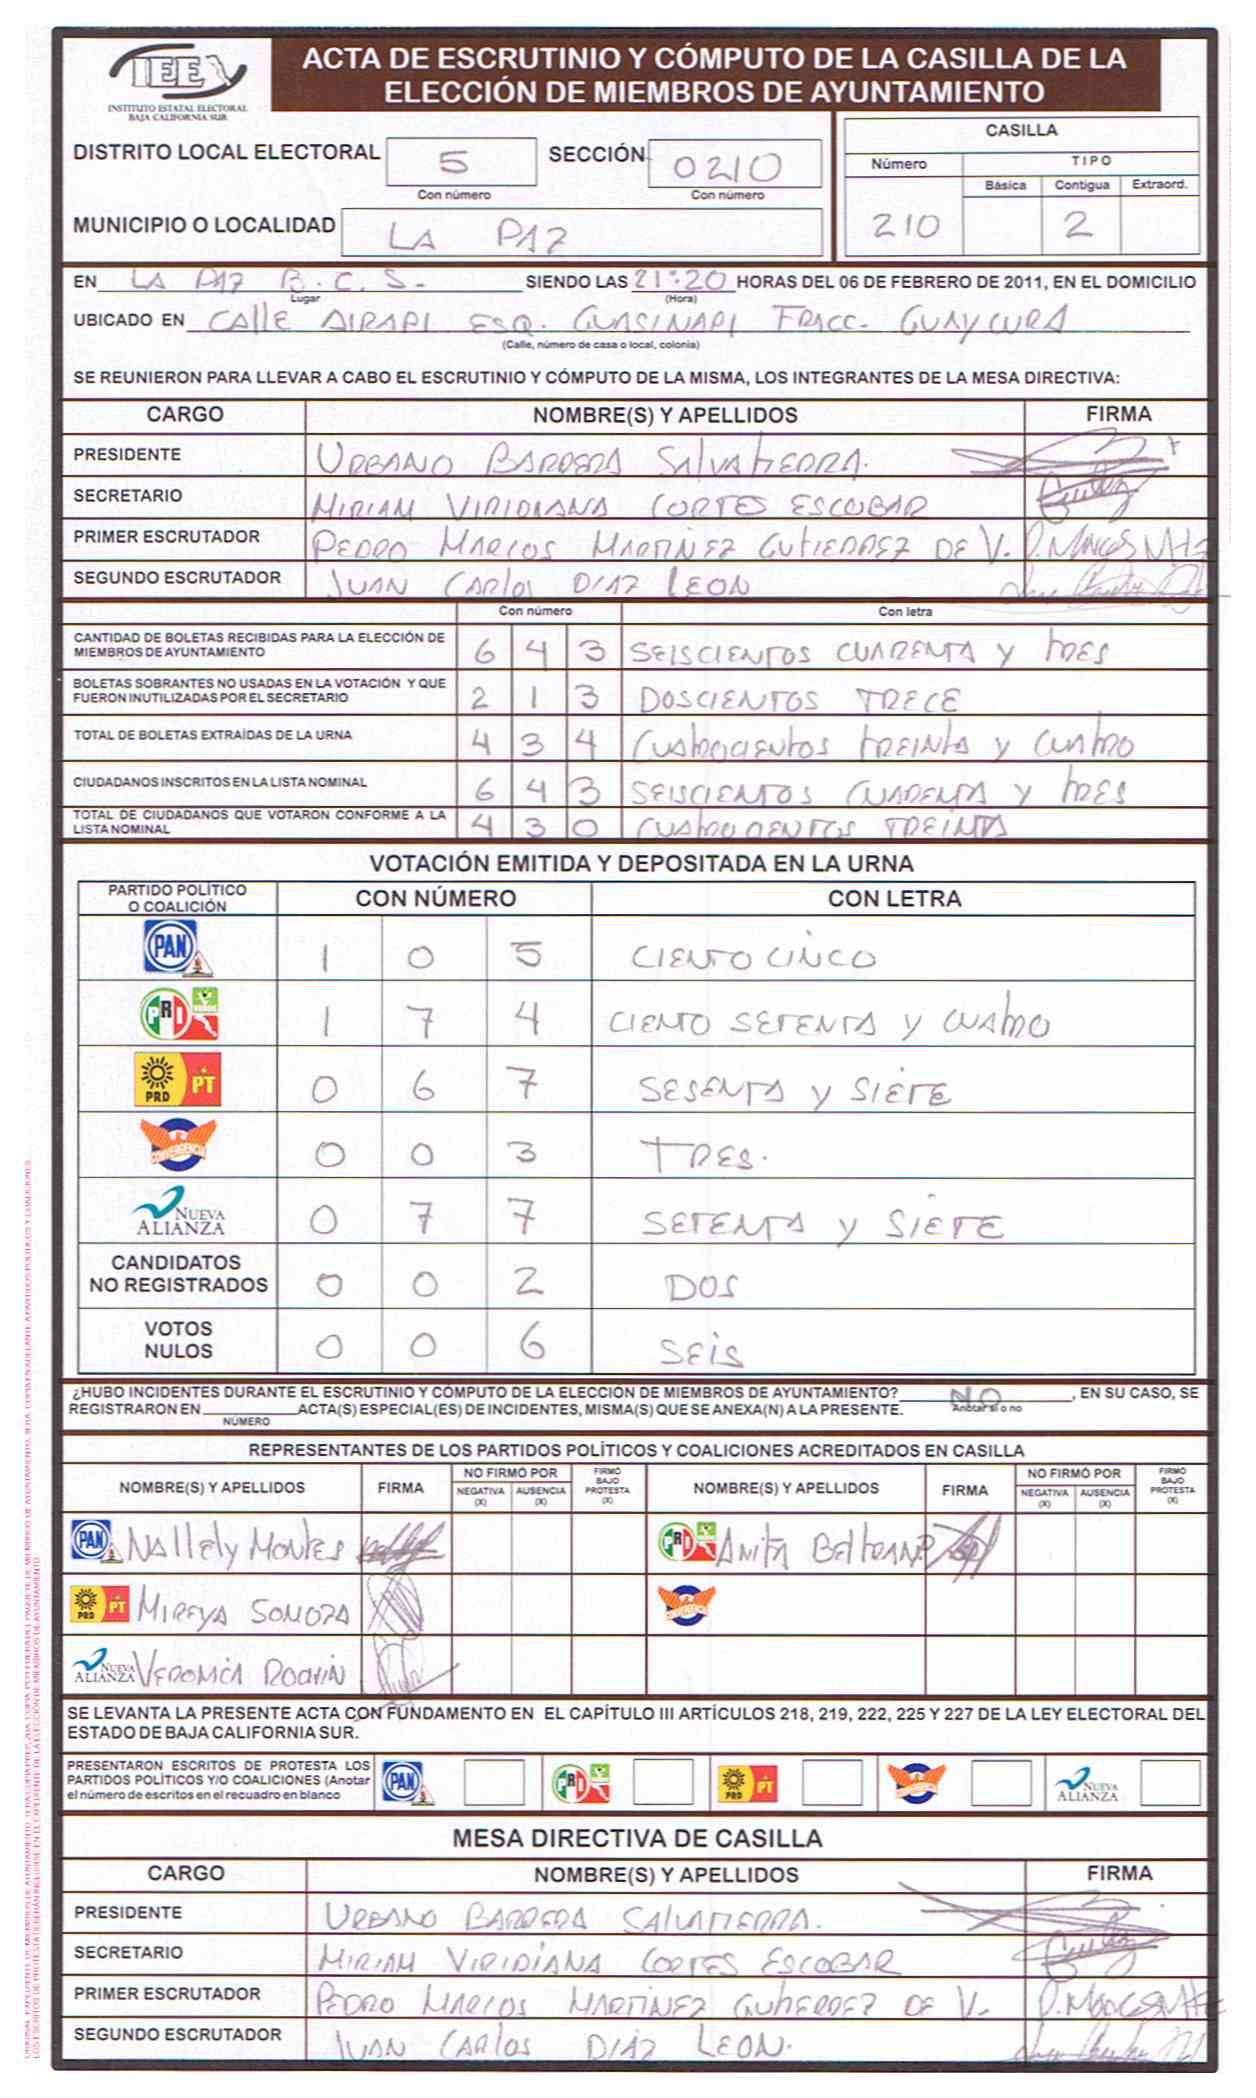 IEE
INSTITUTO ESTATAL ELECTORAL
BAJA CALIFORNIA SUR
ACTA DE ESCRUTINIO Y CÓMPUTO DE LA CASILLA DE LA
ELECCIÓN DE MIEMBROS DE AYUNTAMIENTO
DISTRITO LOCAL ELECTORAL 5 SECCIÓN 0210
Con número Con número
MUNICIPIO O LOCALIDAD LA PAZ
CASILLA
Número TIPO
Básica Contigua Extraord.
210 2
EN LA PAZ B.C.S. SIENDO LAS 21:20 HORAS DEL 06 DE FEBRERO DE 2011, EN EL DOMICILIO
Lugar (Hora)
UBICADO EN CALLE AIRAPI ESQ. GUASINAPI FRACC. GUAYCURA
(Calle, número de casa o local, colonia)
SE REUNIERON PARA LLEVAR A CABO EL ESCRUTINIO Y CÓMPUTO DE LA MISMA, LOS INTEGRANTES DE LA MESA DIRECTIVA:
CARGO NOMBRE(S) Y APELLIDOS FIRMA
PRESIDENTE URBANO BARRERA SALVATIERRA.
SECRETARIO MIRIAM VIRIDIANA CORTES ESCOBAR
PRIMER ESCRUTADOR PEDRO MARCOS MARTINEZ GUTIERREZ DE V. P. MARCOS MTZ
SEGUNDO ESCRUTADOR JUAN CARLOS DIAZ LEON
Con número Con letra
CANTIDAD DE BOLETAS RECIBIDAS PARA LA ELECCIÓN DE
MIEMBROS DE AYUNTAMIENTO 6 4 3 SEISCIENTOS CUARENTA Y TRES
BOLETAS SOBRANTES NO USADAS EN LA VOTACIÓN Y QUE
FUERON INUTILIZADAS POR EL SECRETARIO 2 1 3 DOSCIENTOS TRECE
TOTAL DE BOLETAS EXTRAÍDAS DE LA URNA 4 3 4 CUATROCIENTOS TREINTA Y CUATRO
CIUDADANOS INSCRITOS EN LA LISTA NOMINAL 6 4 3 SEISCIENTOS CUARENTA Y TRES
TOTAL DE CIUDADANOS QUE VOTARON CONFORME A LA
LISTA NOMINAL 4 3 0 CUATROCIENTOS TREINTA
VOTACIÓN EMITIDA Y DEPOSITADA EN LA URNA
PARTIDO POLÍTICO
O COALICIÓN CON NÚMERO CON LETRA
PAN 1 0 5 CIENTO CINCO
PRI VERDE 1 7 4 CIENTO SETENTA Y CUATRO
PRD PT 0 6 7 SESENTA Y SIETE
CONVERGENCIA 0 0 3 TRES.
NUEVA ALIANZA 0 7 7 SETENTA Y SIETE
CANDIDATOS
NO REGISTRADOS 0 0 2 DOS
VOTOS
NULOS 0 0 6 SEIS
¿HUBO INCIDENTES DURANTE EL ESCRUTINIO Y CÓMPUTO DE LA ELECCIÓN DE MIEMBROS DE AYUNTAMIENTO? NO, EN SU CASO, SE
Anotar si o no
REGISTRARON EN ACTA(S) ESPECIAL(ES) DE INCIDENTES, MISMA(S) QUE SE ANEXA(N) A LA PRESENTE.
NÚMERO
REPRESENTANTES DE LOS PARTIDOS POLÍTICOS Y COALICIONES ACREDITADOS EN CASILLA
NOMBRE(S) Y APELLIDOS FIRMA NO FIRMÓ POR NEGATIVA (X) AUSENCIA (X) FIRMÓ BAJO PROTESTA (X) NOMBRE(S) Y APELLIDOS FIRMA NO FIRMÓ POR NEGATIVA (X) AUSENCIA (X) FIRMÓ BAJO PROTESTA (X)
PAN Nallely Montes PRI Anita Beltran
PRD PT MIREYA SOMOZA CONVERGENCIA
NUEVA ALIANZA VERONICA ROCHIN
SE LEVANTA LA PRESENTE ACTA CON FUNDAMENTO EN EL CAPÍTULO III ARTÍCULOS 218, 219, 222, 225 Y 227 DE LA LEY ELECTORAL DEL
ESTADO DE BAJA CALIFORNIA SUR.
PRESENTARON ESCRITOS DE PROTESTA LOS
PARTIDOS POLÍTICOS Y/O COALICIONES (Anotar
el número de escritos en el recuadro en blanco
PAN PRI PRD PT CONVERGENCIA NUEVA ALIANZA
MESA DIRECTIVA DE CASILLA
CARGO NOMBRE(S) Y APELLIDOS FIRMA
PRESIDENTE URBANO BARRERA SALVATIERRA.
SECRETARIO MIRIAM VIRIDIANA CORTES ESCOBAR
PRIMER ESCRUTADOR PEDRO MARCOS MARTINEZ GUTIERREZ DE V. P. MARCOS MTZ
SEGUNDO ESCRUTADOR JUAN CARLOS DIAZ LEON.